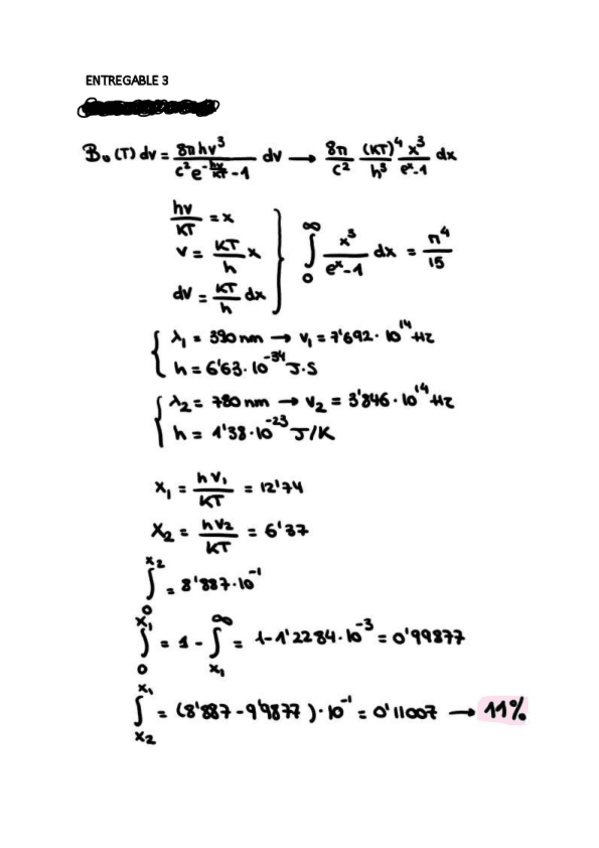 ENTREGABLE 3
Bν(T)dν = 8πhν³ / c² e^(-hν/KT) - 1 dν → 8π/c² (KT)⁴/h³ x³/(eˣ-1) dx
hν/KT = x
ν = KT/h x
dν = KT/h dx
∫₀^∞ x³/(eˣ-1) dx = π⁴/15
λ₁ = 390 nm → ν₁ = 7'692·10¹⁴ Hz
h = 6'63·10⁻³⁴ J·S
λ₂ = 780 nm → ν₂ = 3'846·10¹⁴ Hz
h = 1'38·10⁻²³ J/K
x₁ = hν₁/KT = 12'74
x₂ = hν₂/KT = 6'37
∫₀^x₂ = 8'887·10⁻¹
∫₀^x₁ = 1 - ∫x₁^∞ = 1-1'2284·10⁻³ = 0'99877
∫x₂^x₁ = (8'887-9'9877)·10⁻¹ = 0'11007 → 11%